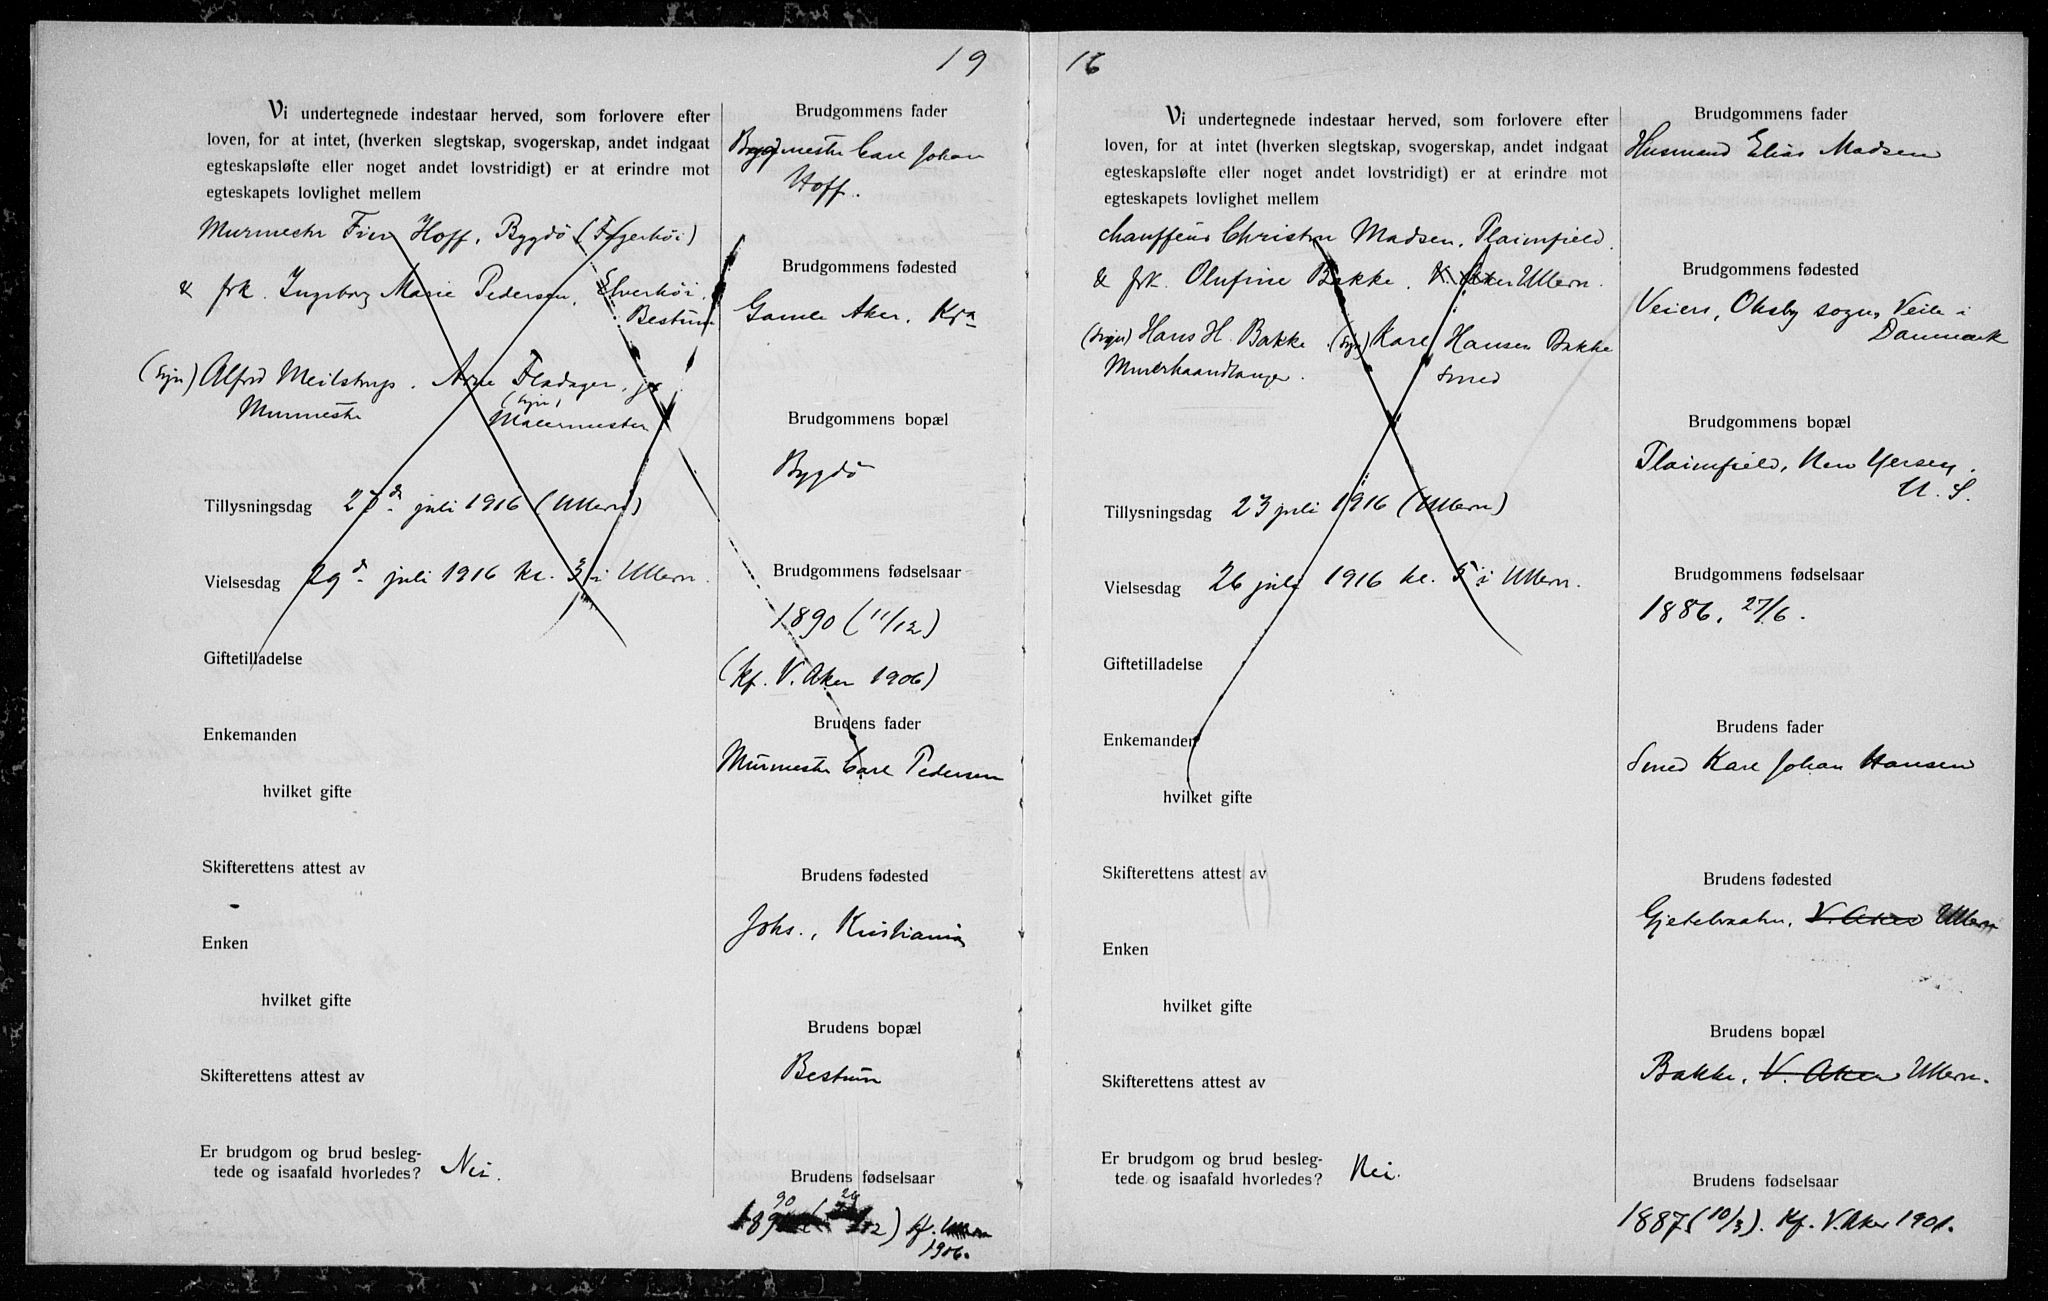 19
Vi undertegnede indestaar herved, som forlovere efter
loven, for at intet, (hverken slegtskap, svogerskap, andet indgaat
egteskapsløfte eller noget andet lovstridigt) er at erindre mot
egteskapets lovlighet mellem
Murmester Finn Hoff, Bygdö (Fagerhöi)
& frk. Ingeborg Marie Pedersen, Elverhöi,
Bestum
(sign) Alfred Meilstrup. Arne Fladager, jr
Murmester (sign)
Malermester
Tillysningsdag juli 1916 (Ullern)
Vielsesdag 29d. juli 1916 kl. 3 i Ullern.
Giftetilladelse
Enkemanden
hvilket gifte
Skifterettens attest av
Enken
hvilket gifte
Skifterettens attest av
Er brudgom og brud besleg-
tede og isaafald hvorledes? Nei.
Brudgommens fader
Byggmester Carl Johan
Hoff.
Brudgommens fødested
Gamle Aker, Kra
Brudgommens bopæl
Bygdö
Brudgommens fødselsaar
1890 (11/12)
(Kf. V. Aker 1906)
Brudens fader
Murmester Carl Pedersen
Brudens fødested
Johs., Kristiania
Brudens bopæl
Bestum
Brudens fødselsaar
90 29
189 12) kf.
1906.
16
Vi undertegnede indestaar herved, som forlovere efter
loven, for at intet (hverken slegtskap, svogerskap, andet indgaat
egteskapsløfte eller noget andet lovstridigt) er at erindre mot
egteskapets lovlighet mellem
Chauffeur Christen Madsen, Plainfield.
& frk. Olufine Bakke, V. Aker Ullern.
(sign) Hans H. Bakke. (sign) Karl Hansen Bakke
Murerhaandlanger. Smed
Tillysningsdag 23 juli 1916 (Ullern)
Vielsesdag 26 juli 1916 kl. 5 i Ullern.
Giftetilladelse
Enkemanden
hvilket gifte
Skifterettens attest av
Enken
hvilket gifte
Skifterettens attest av
Er brudgom og brud besleg-
tede og isaafald hvorledes? Nei.
Brudgommens fader
Husmand Elias Madsen
Brudgommens fødested
Veiers, Oksby sogn, Veile i
Danmark
Brudgommens bopæl
Plainfield, New Yersey.
U. S.
Brudgommens fødselsaar
1886, 27/6.
Brudens fader
Smed Karl Johan Hansen
Brudens fødested
V. Aker Ullern
Brudens bopæl
Bakke, V. Aker Ullern.
Brudens fødselsaar
1887 (10/3). Kf. V. Aker 1901.